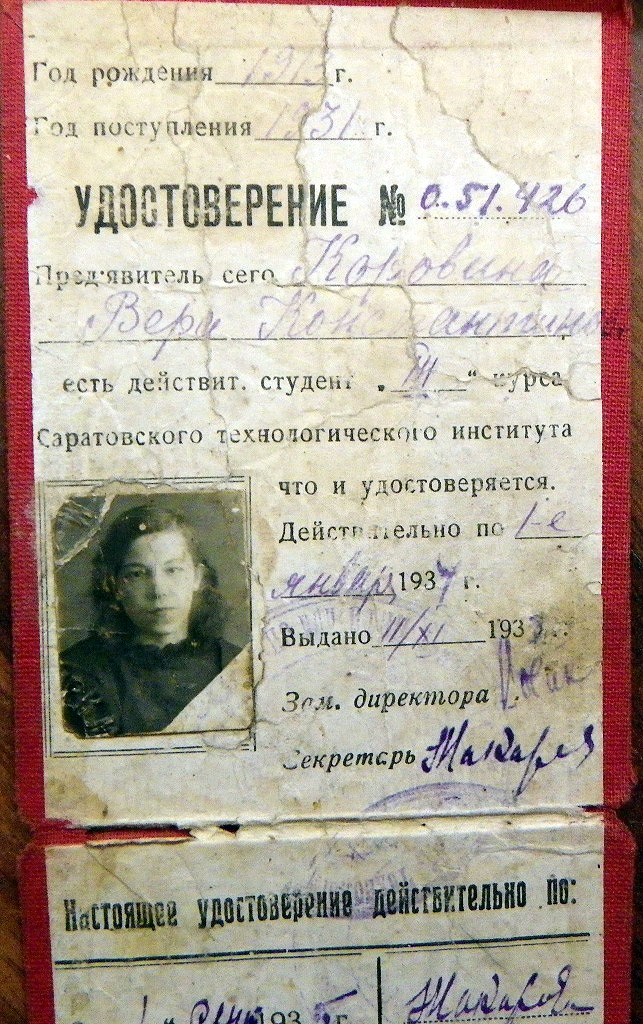 Год рождения 1913 г.
Год поступления 1931 г.
УДОСТОВЕРЕНИЕ № 0.51.426
Пред'явитель сего Коковина
Вера Константинов
есть действит. студент „III“ курса
Саратовского технологического института
что и удостоверяется.
Действительно по 1-е
январ 1937 г.
Выдано III/XI 193
Зам. директора
Секретарь Макаров
Настоящее удостоверение действительно по:
1 193 г. Макаров